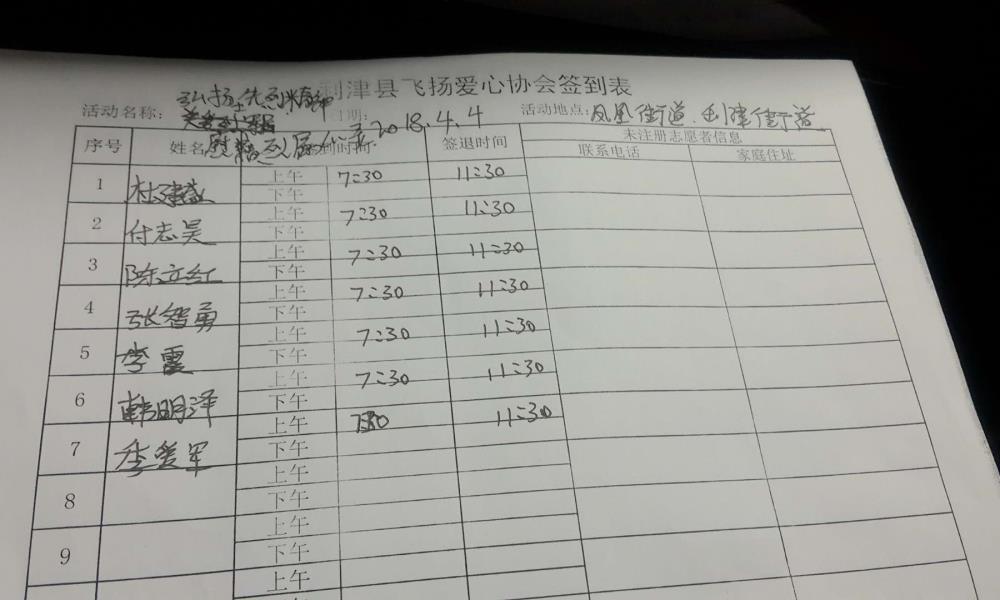 利津县飞扬爱心协会签到表
活动名称: 弘扬先烈精神 日期: 2018.4.4 活动地点: 凤凰街道、利津街道
慰藉烈属
序号 姓名 到时间 签退时间 未注册志愿者信息
联系电话 家庭住址
1 杜建盛 上午 7:30 11:30
下午
2 付志吴 上午 7:30 11:30
下午
3 陈立红 上午 7:30 11:30
下午
4 张智勇 上午 7:30 11:30
下午
5 李霞 上午 7:30 11:30
下午
6 韩明泽 上午 7:30 11:30
下午
7 李爱军 上午 7:30 11:30
下午
8 上午
下午
9 上午
下午
上午